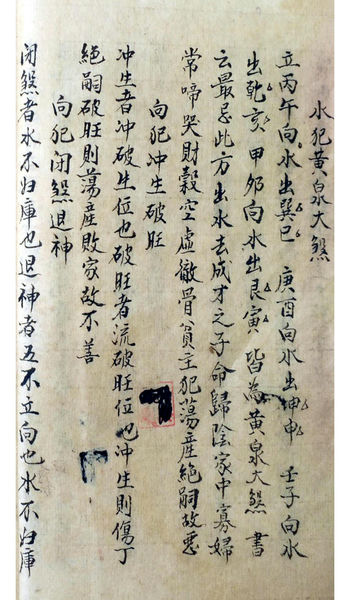 水犯黃泉大煞
立丙午向水出巽巳 庚酉向水出坤申 壬子向水
出乾亥 甲夘向水出艮寅 皆為黃泉大煞 書
云最忌此方出水去成才之子命歸陰家中寡婦
常啼哭財穀空虛徹骨貧主犯蕩產絕嗣故惡
向犯冲生破旺
冲生者冲破生位也破旺者流破旺位也冲生則傷丁
絕嗣破旺則蕩產敗家故不善
向犯闭煞退神
闭煞者水不归庫也退神者五不立向也水不归庫